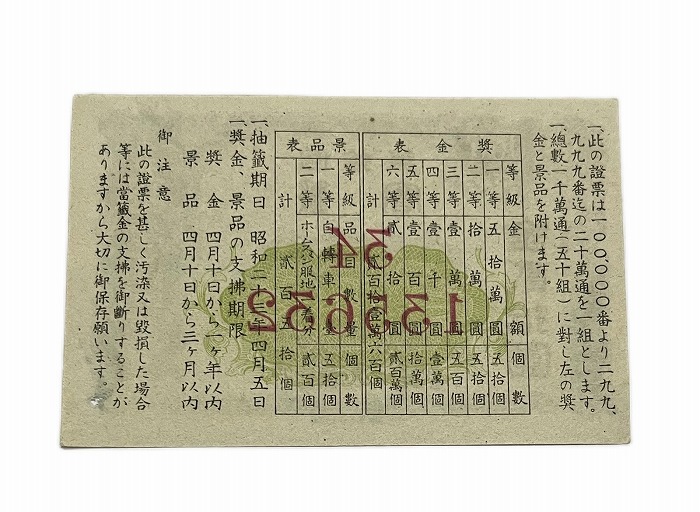 一、此の證票は一〇〇,〇〇〇番より二九九,
九九九番迄の二十萬通を一組とします。
一、總數一千萬通(五十組)に對し左の奬
金と景品を附けます。
奬金表
等級 金額 個數
一等 五拾萬圓 五拾個
二等 拾萬圓 五拾個
三等 壹萬圓 五百個
四等 壹千圓 壹萬個
五等 壹百圓 拾萬個
六等 貳拾圓 貳百萬個
計 貳百拾壹萬六百個
景品表
等級 品目 數量 個數
一等 自轉車 壹 五拾個
二等 ホームスパン服地 一着分 貳百個
計 貳百五拾個
一、抽籤期日 昭和二十三年四月五日
一、奬金、景品の支拂期限
奬金 四月十日から一ヶ年以内
景品 四月十日から三ヶ月以内
御注意
此の證票を甚しく汚染又は毀損した場合
等には當籤金の支拂を御斷りすることが
ありますから大切に御保存願います。